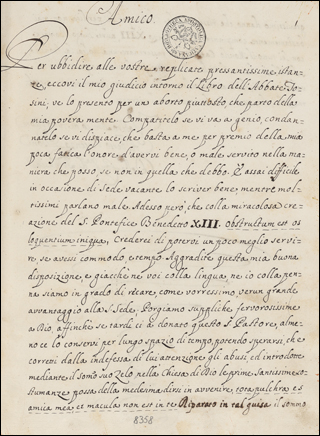 Amico.
1
Per ubbidire alle vostre replicate pressantissime istan-
ze eccovi il mio giudicio intorno il Libro dell'Abbate To-
sini, ve lo presento per uno aborto piuttosto, che parto della
mia povera mente. Compatitelo se vi va a genio, condan-
natelo se vi dispiace, che basta a me per premio della mia
poca fatica l'onore d'avervi bene, o male servito nella ma-
niera che posso, se non in quella che debbo. È assai difficile
in occasione di Sede vacante lo scriver bene, mentre mol-
tissimi parlano male. Adesso però, che colla miracolosa cre-
azione del S. Pontefice Benedetto XIII. obstructum est os
loquentium iniqua, Crederei di potervi un poco meglio servi-
re, se avessi commodo, e tempo. Aggradite questa mia buona
disposizione, e giacchè ne voi colla lingua, ne io colla pen-
na siamo in grado di recare, come vorressimo, verun grande
avvantaggio alla S. Sede, Porgiamo suppliche fervorosissime
a Dio, affinchè se tardi ci à donato questo S. Pastore, alme-
no ce lo conservi per lungo spazio di tempo, potendo sperarsi, che
corretti dalla indefessa di lui attenzione gli abusi, ed introdotte
mediante il sommo suo Zelo nella Chiesa di Dio le prime Santissime co-
stumanze possa della medesima dirsi in avvenire, tota pulchra es
amica mea, et macula non est in te. Riparato in tal guisa il sommo
8358